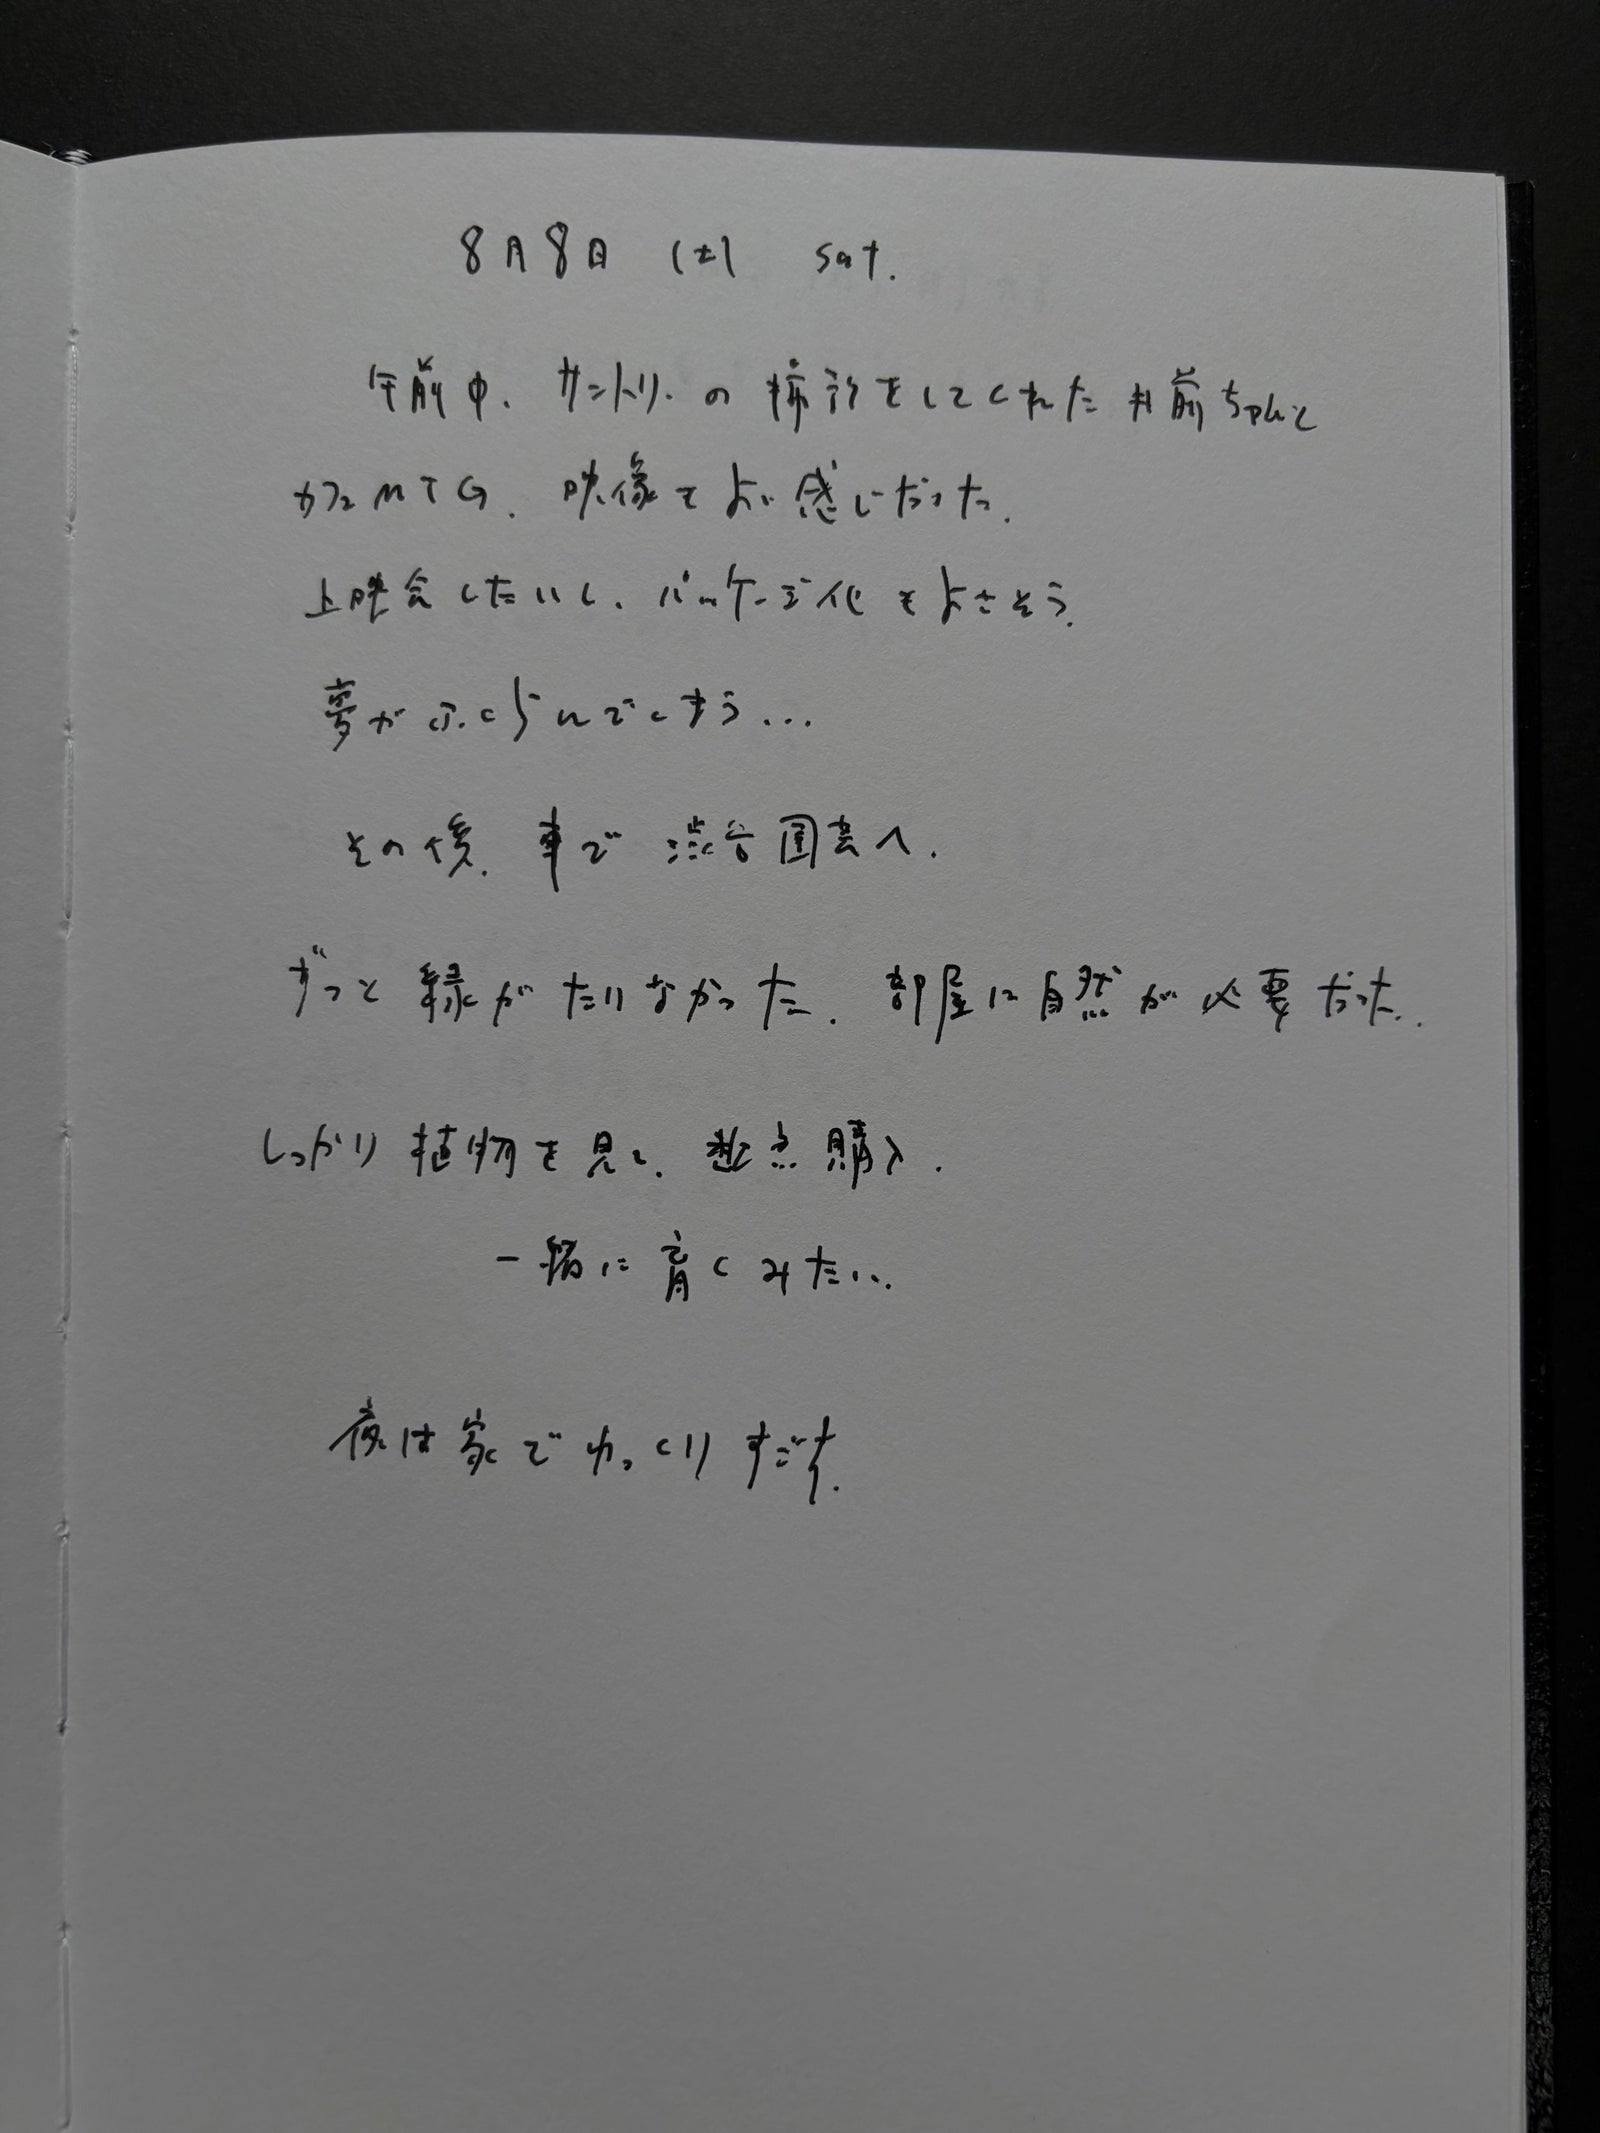 8月8日 (土) sat.
午前中、サントリーの をしてくれた 前ちゃんと
カフェMTG. 映像もよい感じだった。
上映会したいし、パッケージ化もよさそう。
夢がふくらんでしまう...
その後、車で渋谷園芸へ.
ずっと緑がたりなかった. 部屋に自然が必要だった.
しっかり植物を見て、数点購入.
一緒に育くみたい.
夜は家でゆっくりすごす.